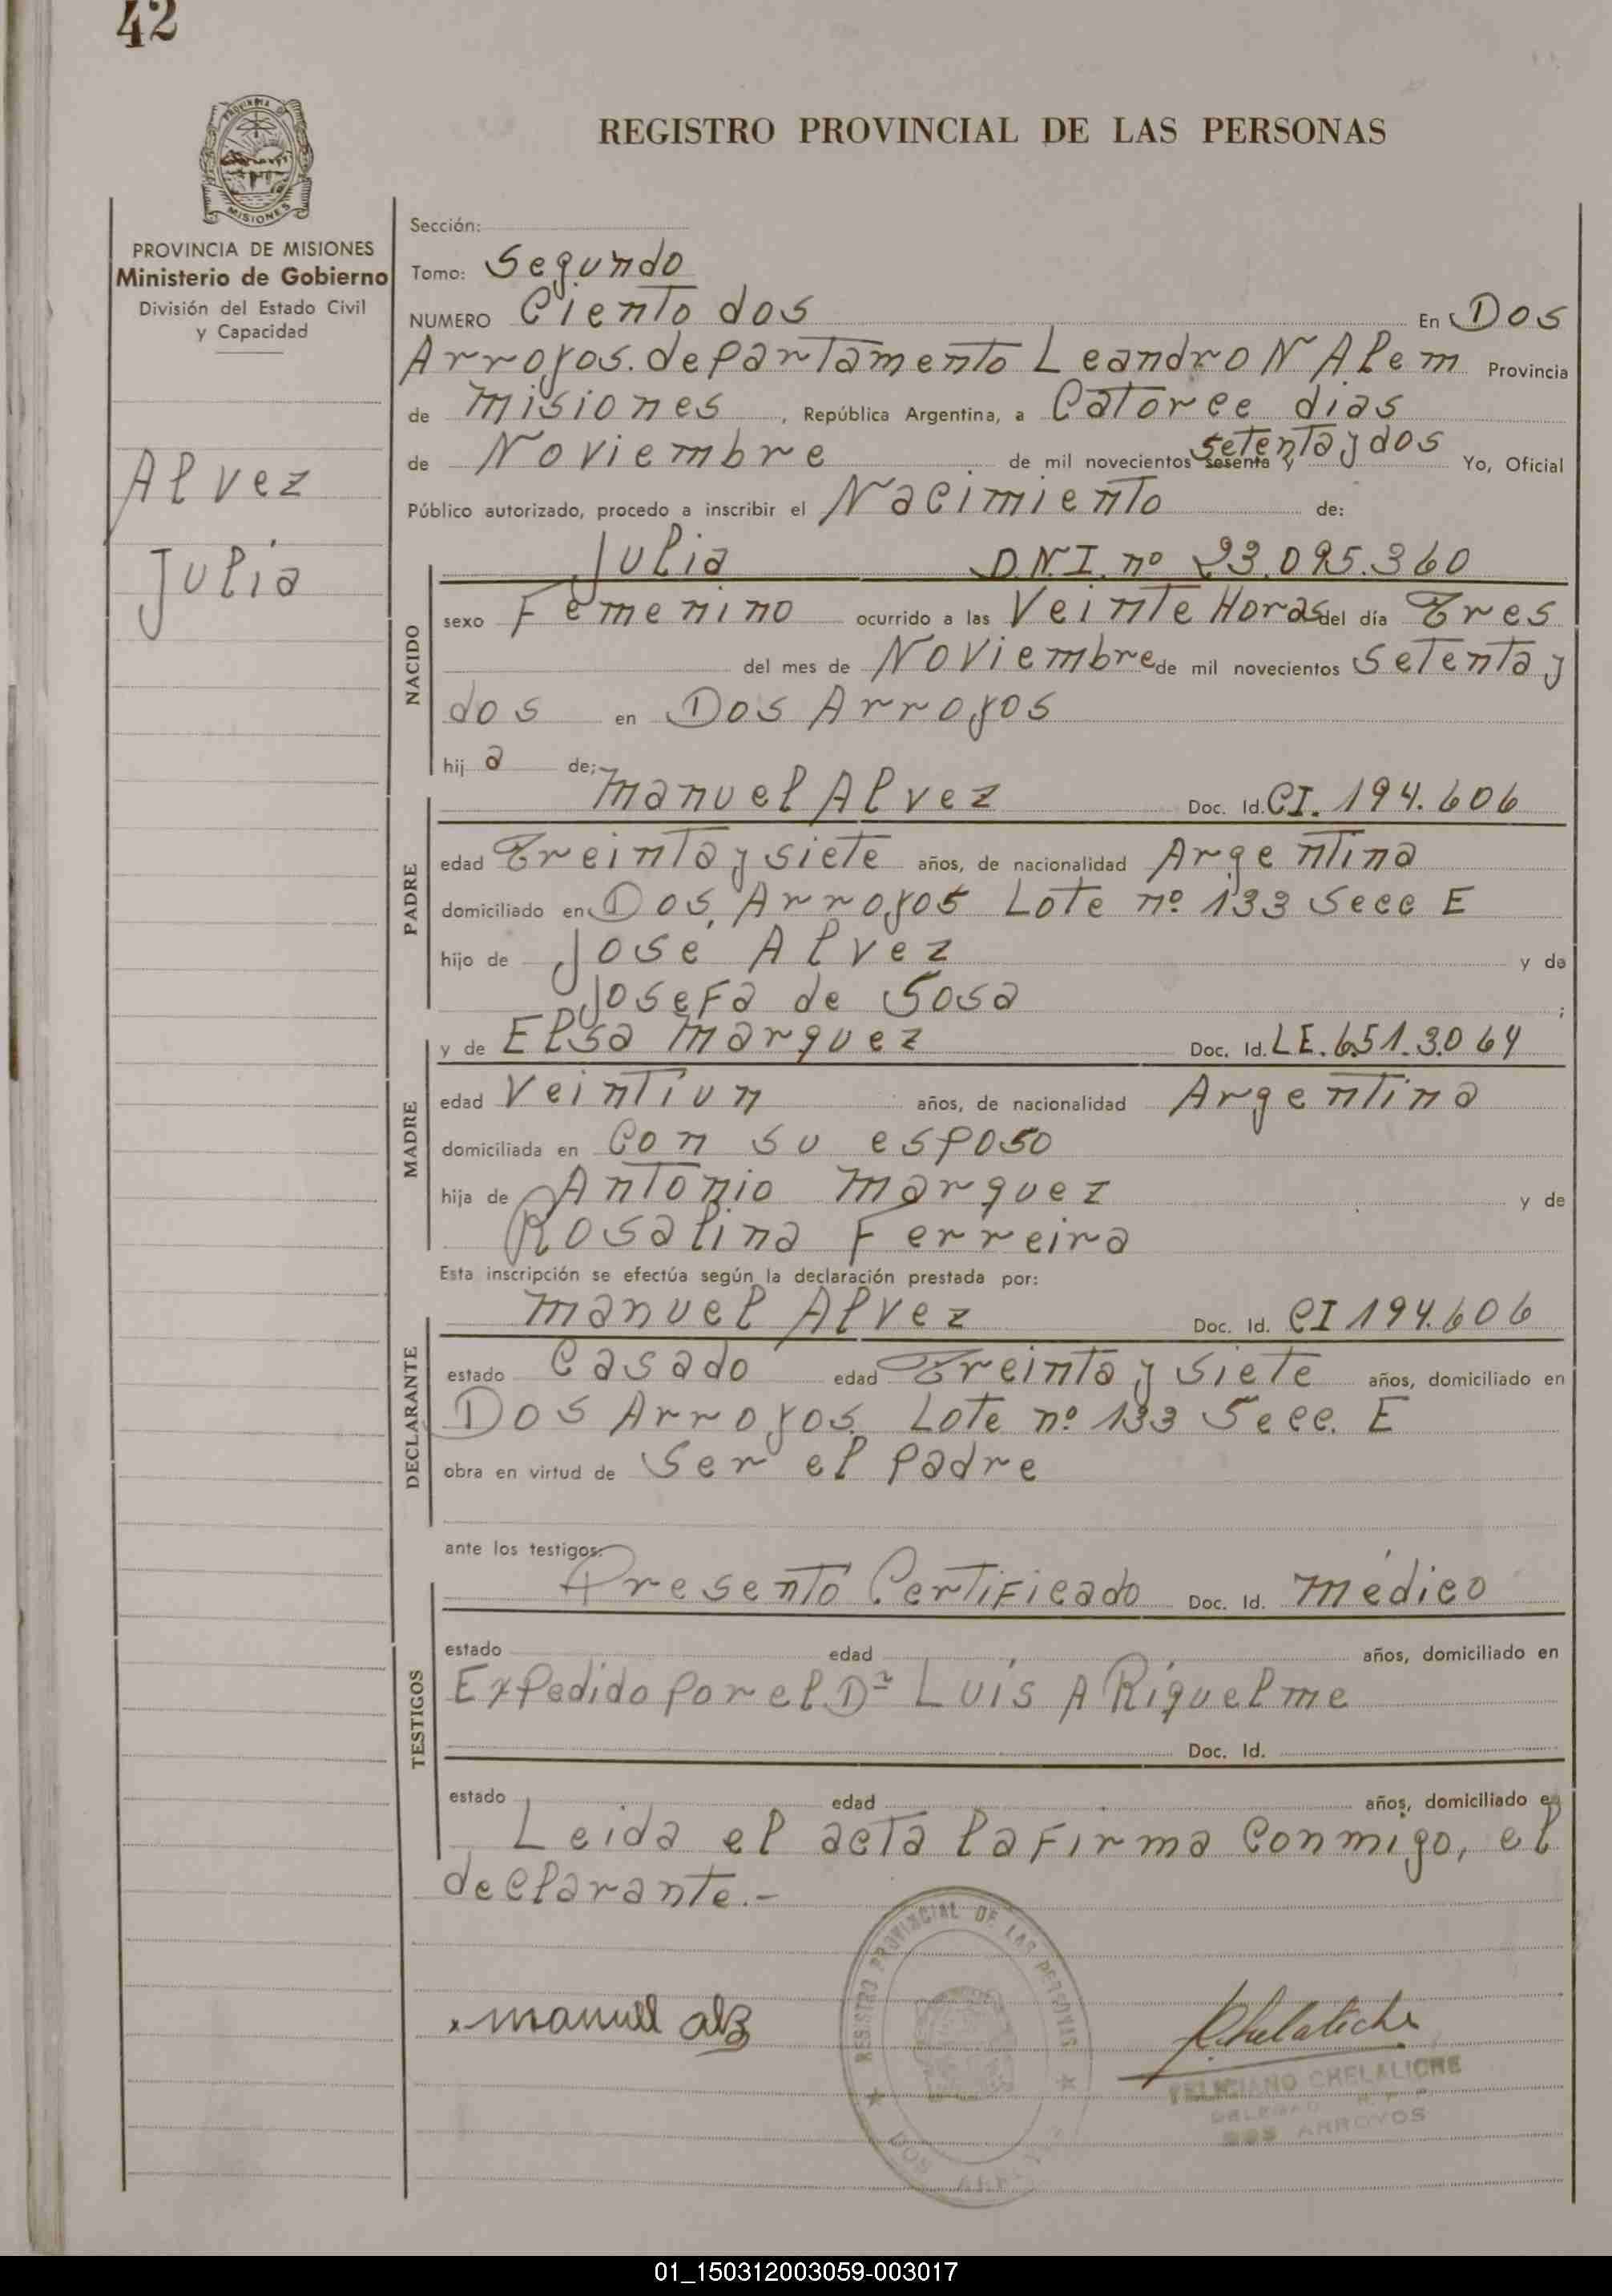 42
REGISTRO PROVINCIAL DE LAS PERSONAS
PROVINCIA DE MISIONES
MISIONES
PROVINCIA DE MISIONES
Ministerio de Gobierno
División del Estado Civil
y Capacidad
Alvez
Julia
Sección:
Tomo: Segundo
NUMERO Ciento dos En Dos
Arroyos. departamento Leandro N Alem Provincia
de Misiones, República Argentina, a Catorce dias
de Noviembre de mil novecientos sesenta y setenta y dos Yo, Oficial
Público autorizado, procedo a inscribir el Nacimiento de:
NACIDO
Julia D.N.I. nº 23.095.360
sexo Femenino ocurrido a las Veinte Horas del día Tres
del mes de Noviembre de mil novecientos Setenta y
dos en Dos Arroyos
hij a de;
PADRE
Manuel Alvez Doc. Id. CI. 194.606
edad Treinta y siete años, de nacionalidad Argentina
domiciliado en Dos Arroyos Lote nº 133 Secc E
hijo de José Alvez y de
Josefa de Sosa ;
MADRE
y de Elsa Marquez Doc. Id. LE. 6.51.3.064
edad Veintíun años, de nacionalidad Argentina
domiciliada en Con su esposo
hija de Antonio Marquez y de
Rosalina Ferreira
Esta inscripción se efectúa según la declaración prestada por:
DECLARANTE
Manuel Alvez Doc. Id. CI 194.606
estado Casado edad Treinta y siete años, domiciliado en
Dos Arroyos. Lote nº 133 Secc. E
obra en virtud de Ser el Padre
ante los testigos:
TESTIGOS
Presentó Certificado Doc. Id. Médico
estado edad años, domiciliado en
Expedido por el Dr Luis A Riquelme
Doc. Id.
estado edad años, domiciliado en
Leida el acta la firma conmigo, el
declarante.-
manuel alz
REGISTRO PROVINCIAL DE LAS PERSONAS
DOS
Chelaliche
FELICIANO CHELALICHE
DELEGADO R. P. P.
DOS ARROYOS
01_150312003059-003017